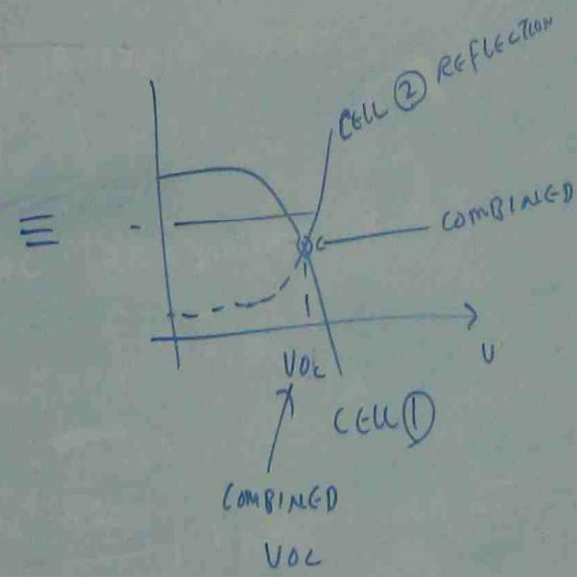 CELL ② REFLECTION
≡
COMBINED
VOC
V
CELL ①
COMBINED
VOC